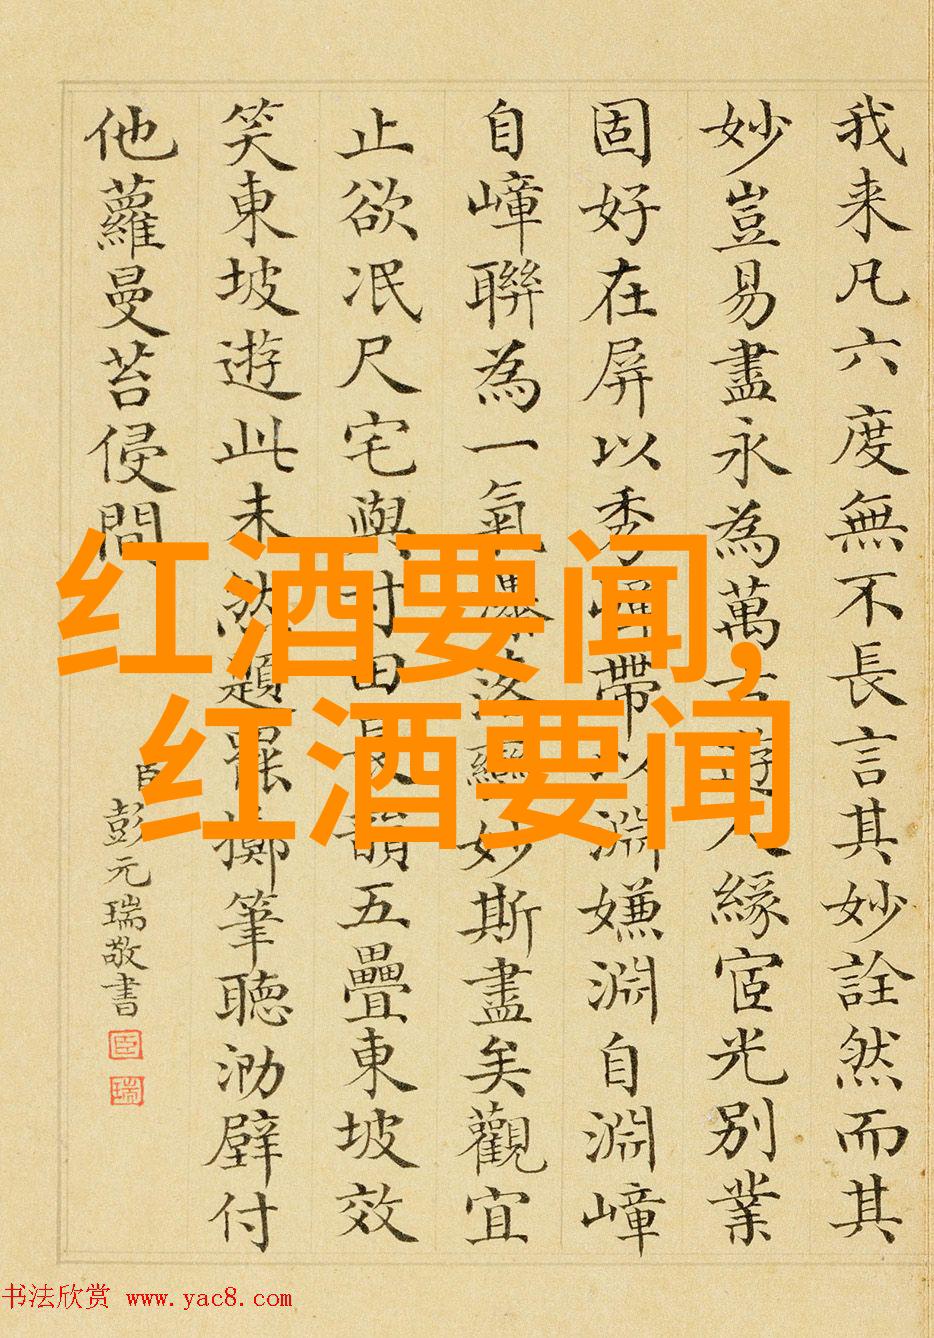 我来凡六度無不長言其妙詮然而其
妙豈易盡永為萬古遊人緣宧光別業
固好在屏以秀帶以淵嫌淵自淵嶂
自嶂聯為一氣落妙斯盡矣觀宜
止欲泯尺宅與寸田長韻五疊東坡效
笑東坡遊此未題罷擲筆聽泐壁付
他蘿曼苔侵問
臣彭元瑞敬書
臣
瑞
红酒要闻,
红酒要闻
书法欣赏 www.yac8.com